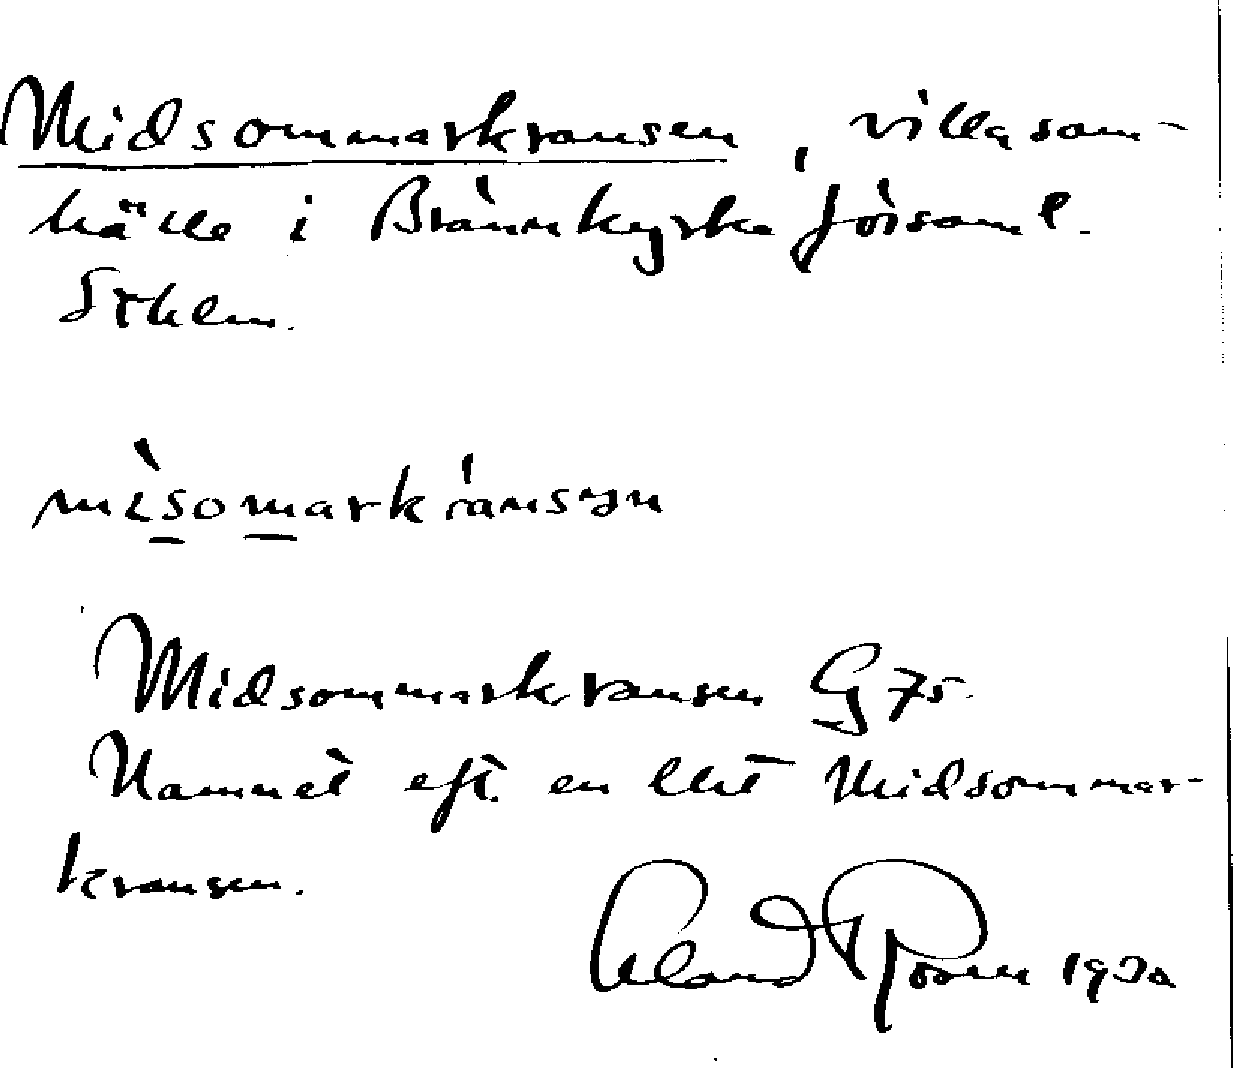 Midsommarkransen, villasam-
hälle i Brännkyrka församl.
Sthlm.
mìsomarkránsən
Midsommarkransen G 75.
Namnet eft. en lht Midsommar-
kransen.
Roland 19